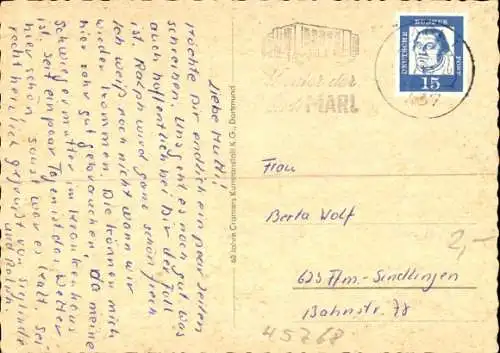 Liebe Mutti!
Möchte Dir endlich ein paar Zeilen
schreiben. Uns geht es noch gut was
auch hoffentlich bei Dir der Fall
ist. Ralph wird ganz schön frech
Ich weiß noch nicht wann wir
wieder kommen. Die können mich
hier sehr gut gebrauchen, da meine
Schwiegermutter im Krankenhaus
ist. seit ein paar Tagen ist das Wetter
hier schön sonst war es kalt. Sei
recht herzlich gegrüßt von Sieglinde
und Ralph.
60 Jahre Cramers Kunstanstalt K.G., Dortmund
Theater der
Stadt MARL
DEUTSCHE BUNDESPOST
15
Frau
Berta Wolf
623 Ffm.-Sindlingen
Bahnstr. 78
2,-
45768